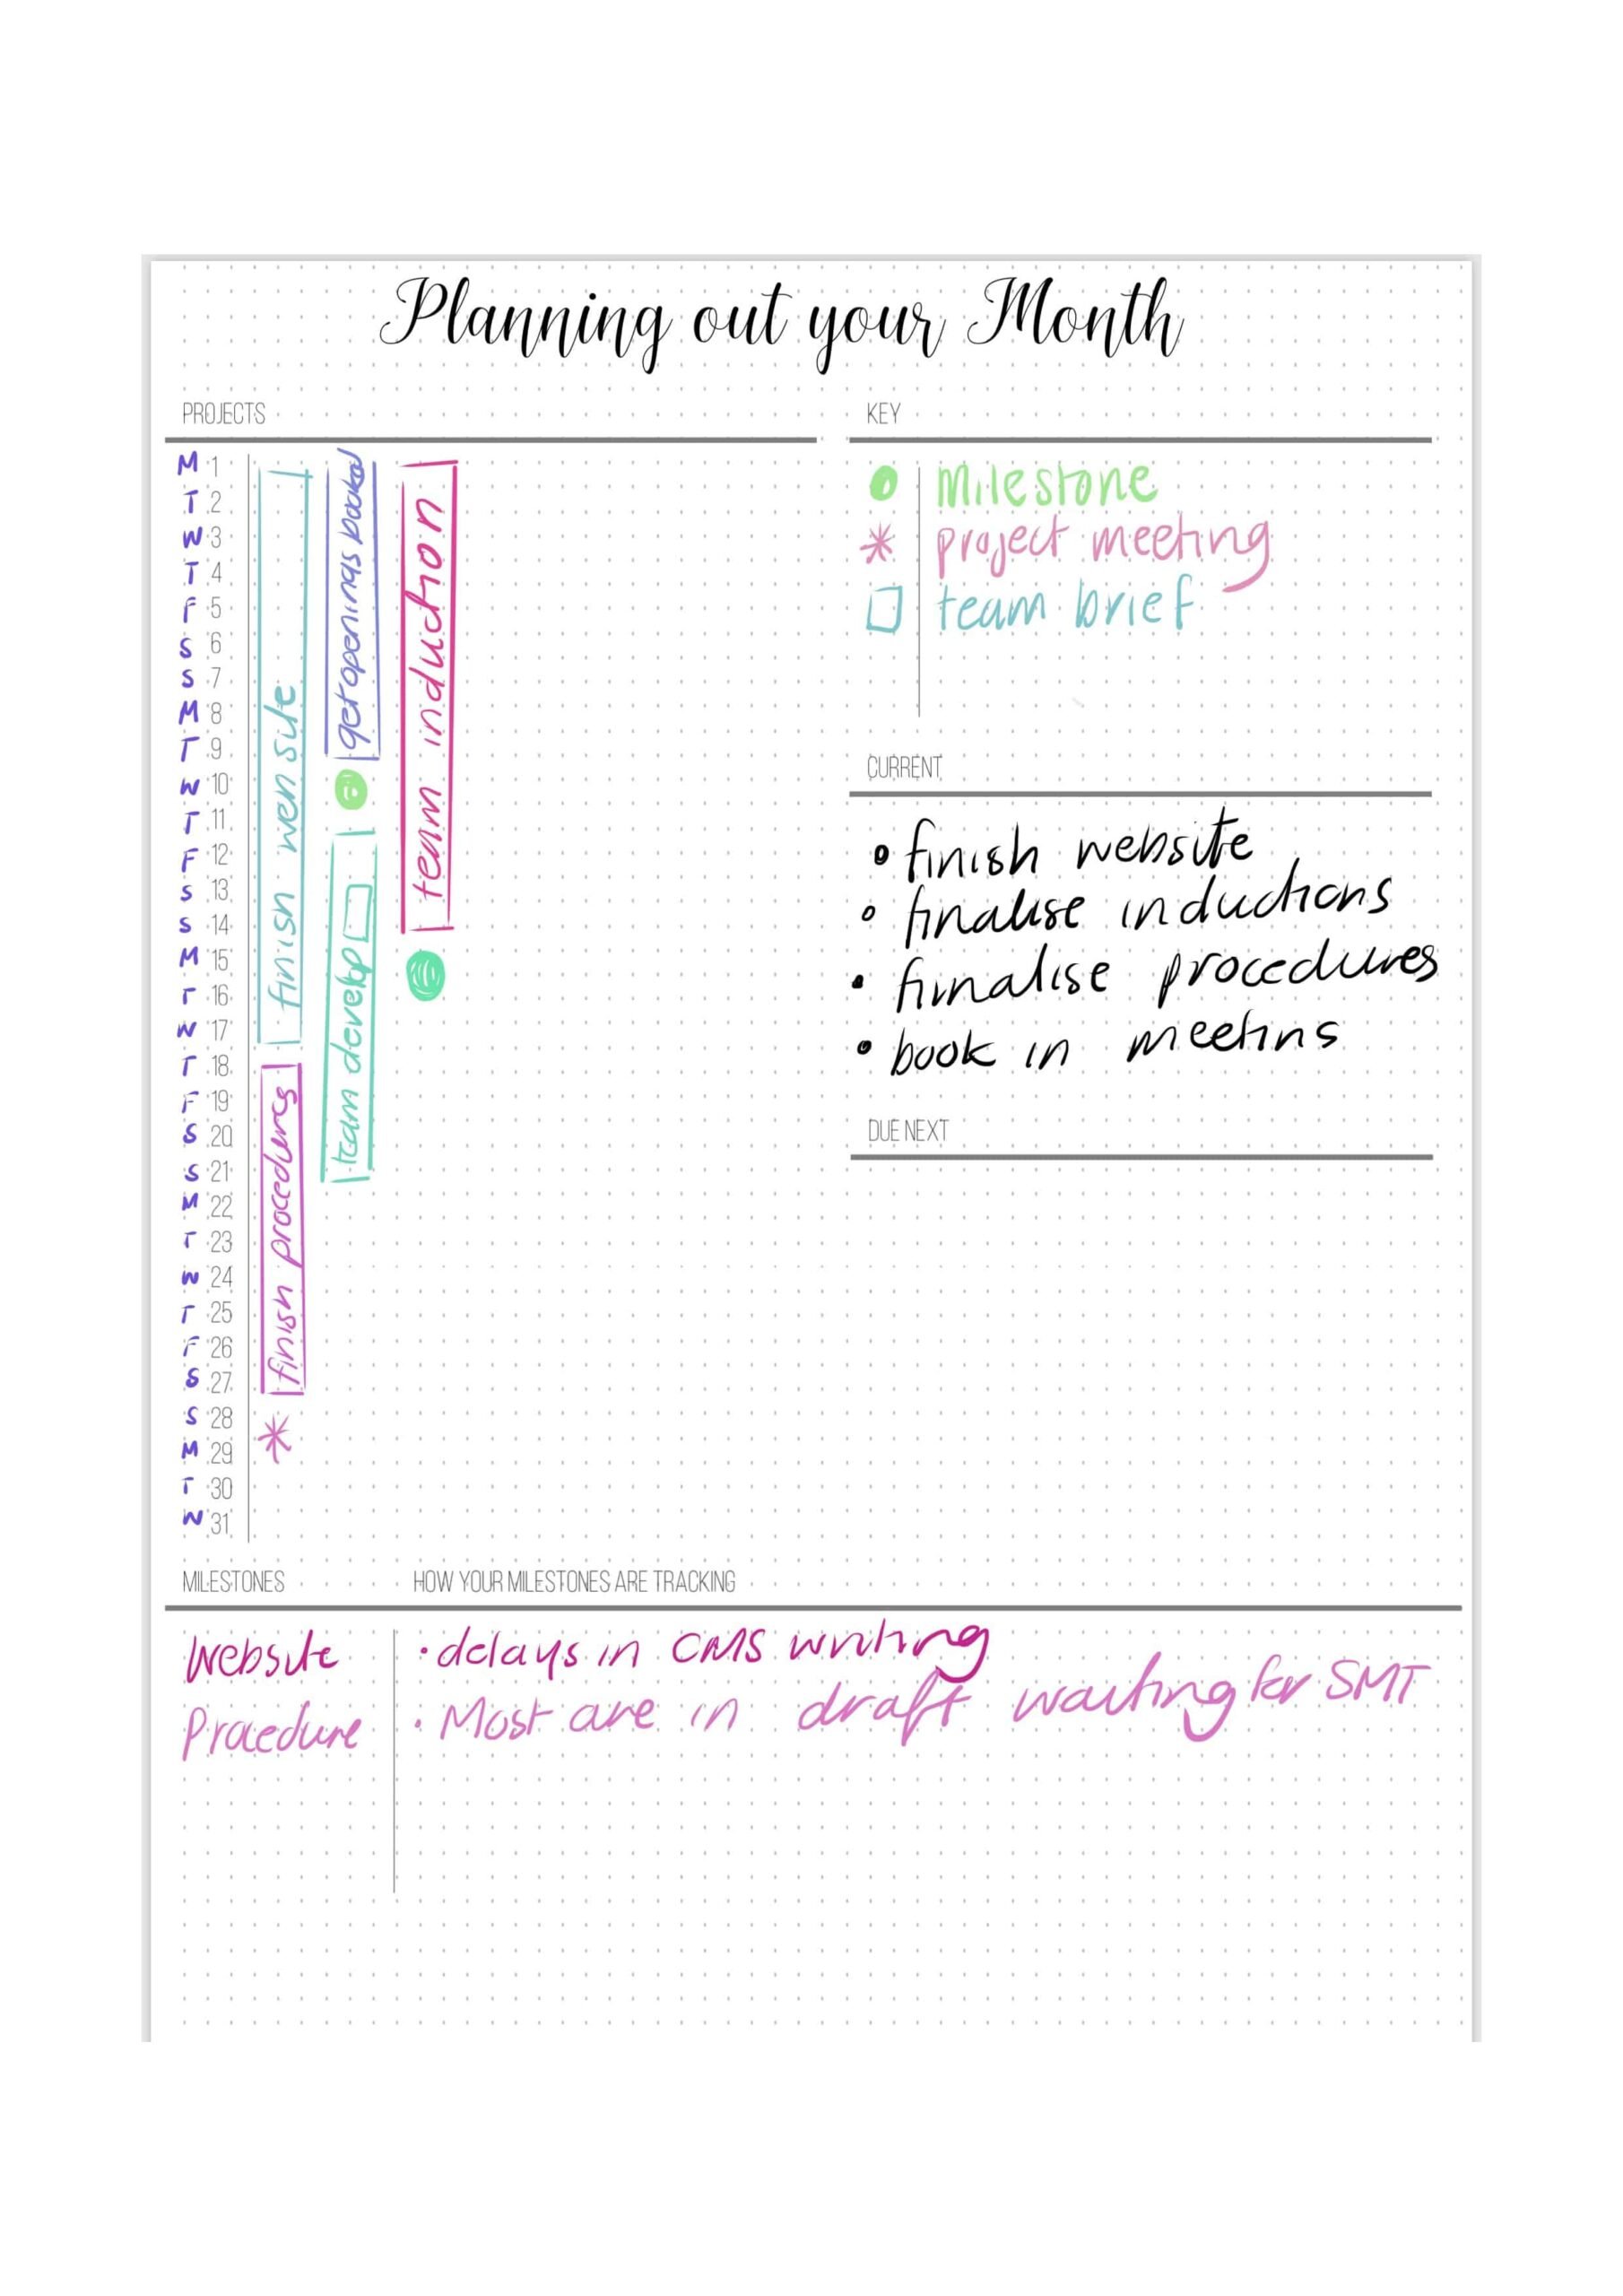 Planning out your Month
PROJECTS
M 1
T 2
W 3
T 4
F 5
S 6
S 7
M 8
T 9
W 10
T 11
F 12
S 13
S 14
M 15
T 16
W 17
T 18
F 19
S 20
S 21
M 22
T 23
W 24
T 25
F 26
S 27
S 28
M 29
T 30
W 31
finish wensite
finish procedures
get openings booked
team develop
team induction
KEY
Milestone
project meeting
team brief
CURRENT
• finish website
• finalise inductions
• finalise procedures
• book in meetins
DUE NEXT
MILESTONES
HOW YOUR MILESTONES ARE TRACKING
Website
• delays in CMS writing
Procedure
• Most are in draft waiting for SMT